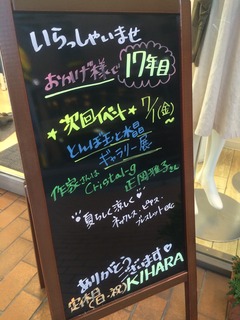 いらっしゃいませ
おかげ様で 17年目
★次回イベント★ 7/1(金)〜
とんぼ玉と水晶
ギャラリー展
作家さんは
Cristal-9 正岡雅子さん
夏らしく涼しく♡
ネックレス・ピアス・
ブレスレット etc
ありがとう
ございます♡
定休日(日・祝) KIHARA